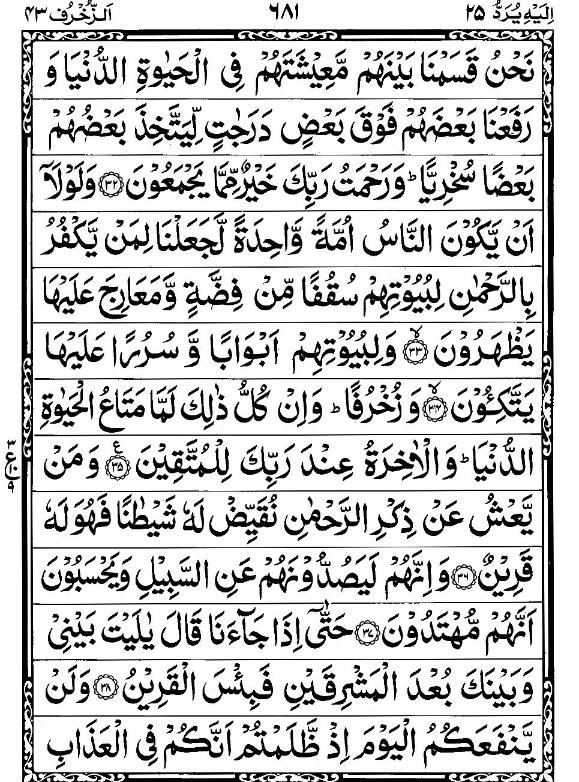 اِلَیْهِ یُرَدُّ ۲۵ ٦٨١ اَلزُّخْرُف ۴۳
نَحْنُ قَسَمْنَا بَیْنَهُمْ مَّعِیْشَتَهُمْ فِی الْحَیٰوةِ الدُّنْیَا وَ
رَفَعْنَا بَعْضَهُمْ فَوْقَ بَعْضٍ دَرَجٰتٍ لِّیَتَّخِذَ بَعْضُهُمْ
بَعْضًا سُخْرِیًّا ؕ وَرَحْمَتُ رَبِّكَ خَیْرٌ مِّمَّا یَجْمَعُوْنَ ﴿۳۲﴾ وَلَوْلَاۤ
اَنْ یَّكُوْنَ النَّاسُ اُمَّةً وَّاحِدَةً لَّجَعَلْنَا لِمَنْ یَّكْفُرُ
بِالرَّحْمٰنِ لِبُیُوْتِهِمْ سُقُفًا مِّنْ فِضَّةٍ وَّمَعَارِجَ عَلَیْهَا
یَظْهَرُوْنَ ﴿۳۳﴾ۙ وَلِبُیُوْتِهِمْ اَبْوَابًا وَّ سُرُرًا عَلَیْهَا
یَتَّكِـُٔوْنَ ﴿۳۴﴾ۙ وَ زُخْرُفًا ؕ وَاِنْ كُلُّ ذٰلِكَ لَمَّا مَتَاعُ الْحَیٰوةِ
الدُّنْیَا ؕ وَالْاٰخِرَةُ عِنْدَ رَبِّكَ لِلْمُتَّقِیْنَ ﴿۳۵﴾ۧ وَمَنْ
یَّعْشُ عَنْ ذِكْرِ الرَّحْمٰنِ نُقَیِّضْ لَهٗ شَیْطٰنًا فَهُوَ لَهٗ
قَرِیْنٌ ﴿۳۶﴾ وَاِنَّهُمْ لَیَصُدُّوْنَهُمْ عَنِ السَّبِیْلِ وَیَحْسَبُوْنَ
اَنَّهُمْ مُّهْتَدُوْنَ ﴿۳۷﴾ حَتّٰۤی اِذَا جَآءَنَا قَالَ یٰلَیْتَ بَیْنِیْ
وَبَیْنَكَ بُعْدَ الْمَشْرِقَیْنِ فَبِئْسَ الْقَرِیْنُ ﴿۳۸﴾ وَلَنْ
یَّنْفَعَكُمُ الْیَوْمَ اِذْ ظَّلَمْتُمْ اَنَّكُمْ فِی الْعَذَابِ